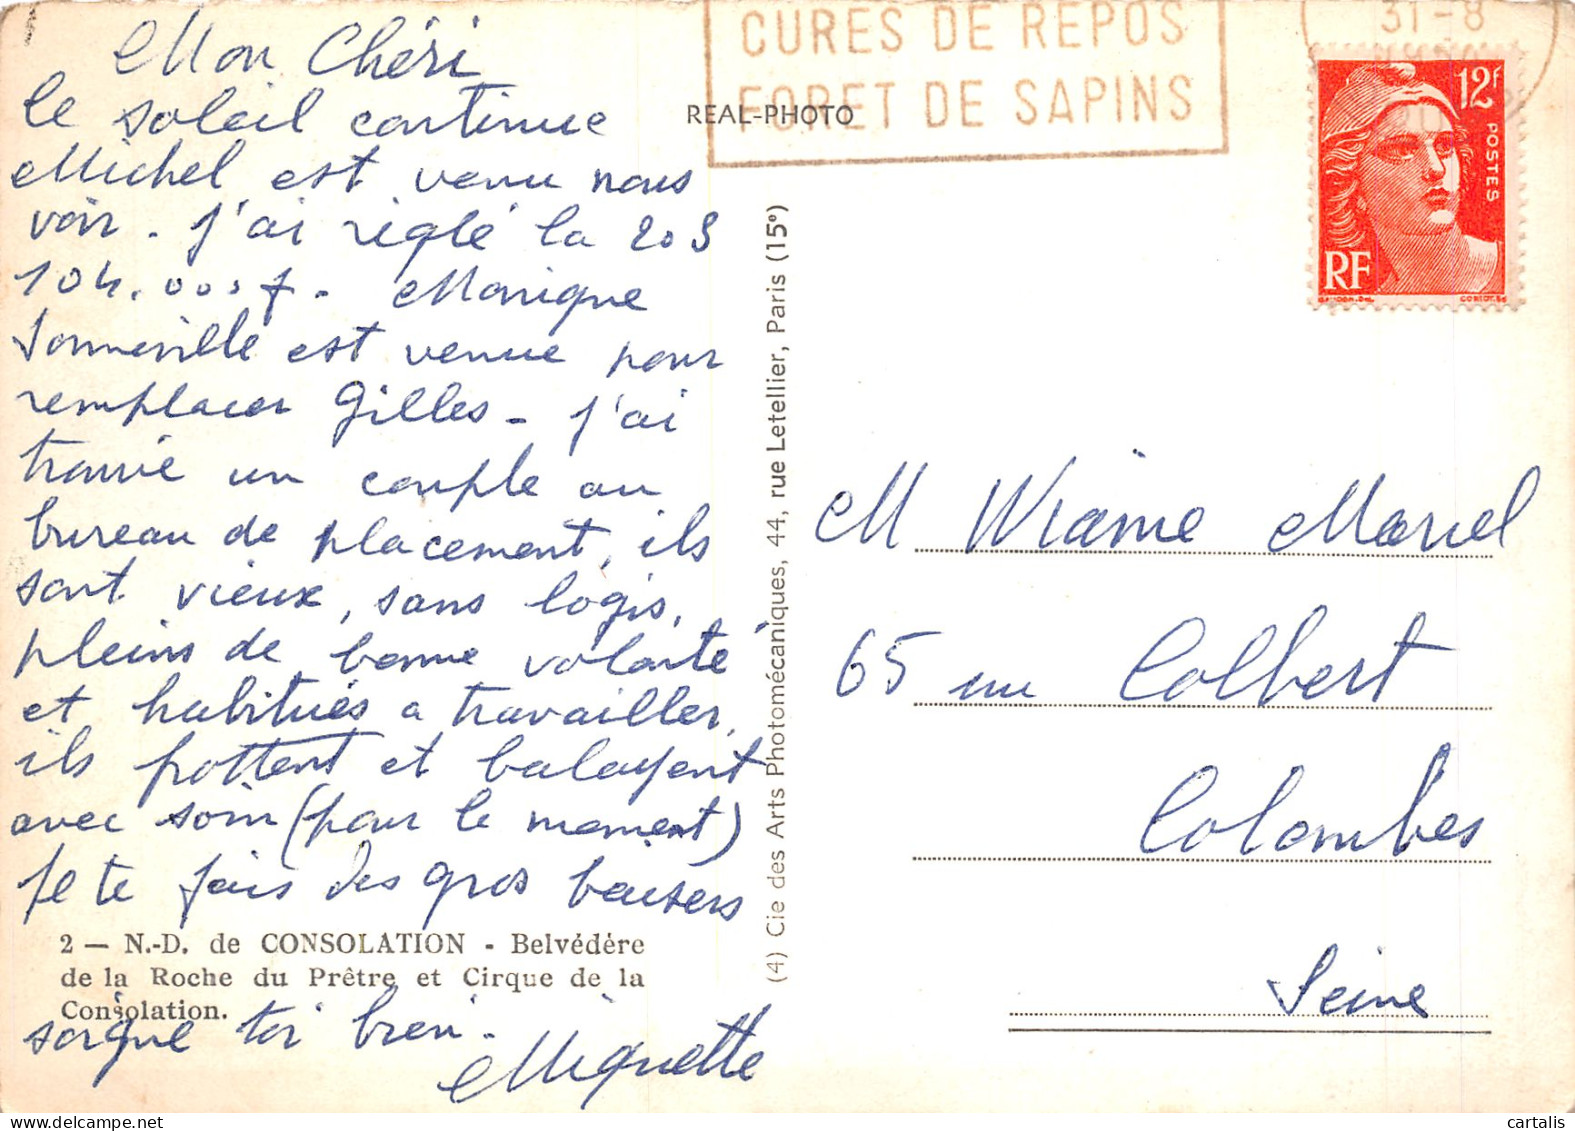 Mon Chéri
le soleil continue
Michel est venu nous
voir - J'ai réglé la 203
104.000f - Monique
Sonneville est venue pour
remplacer Gilles - J'ai
trouvé un couple au
bureau de placement, ils
sont vieux, sans logis,
pleins de bonne volonté
et habitués a travailler,
ils frottent et balayent
avec soin (pour le moment)
Je te fais des gros baisers
2 — N.-D. de CONSOLATION - Belvédère
de la Roche du Prêtre et Cirque de la
Consolation.
soigne toi bien -
Miquette
REAL-PHOTO
(4) Cie des Arts Photomécaniques, 44, rue Letellier, Paris (15e)
CURES DE REPOS
FORET DE SAPINS
31-8
12F
POSTES
RF
M Wiame Marcel
65 rue Colbert
Colombes
Seine
cartalis
www.delcampe.net